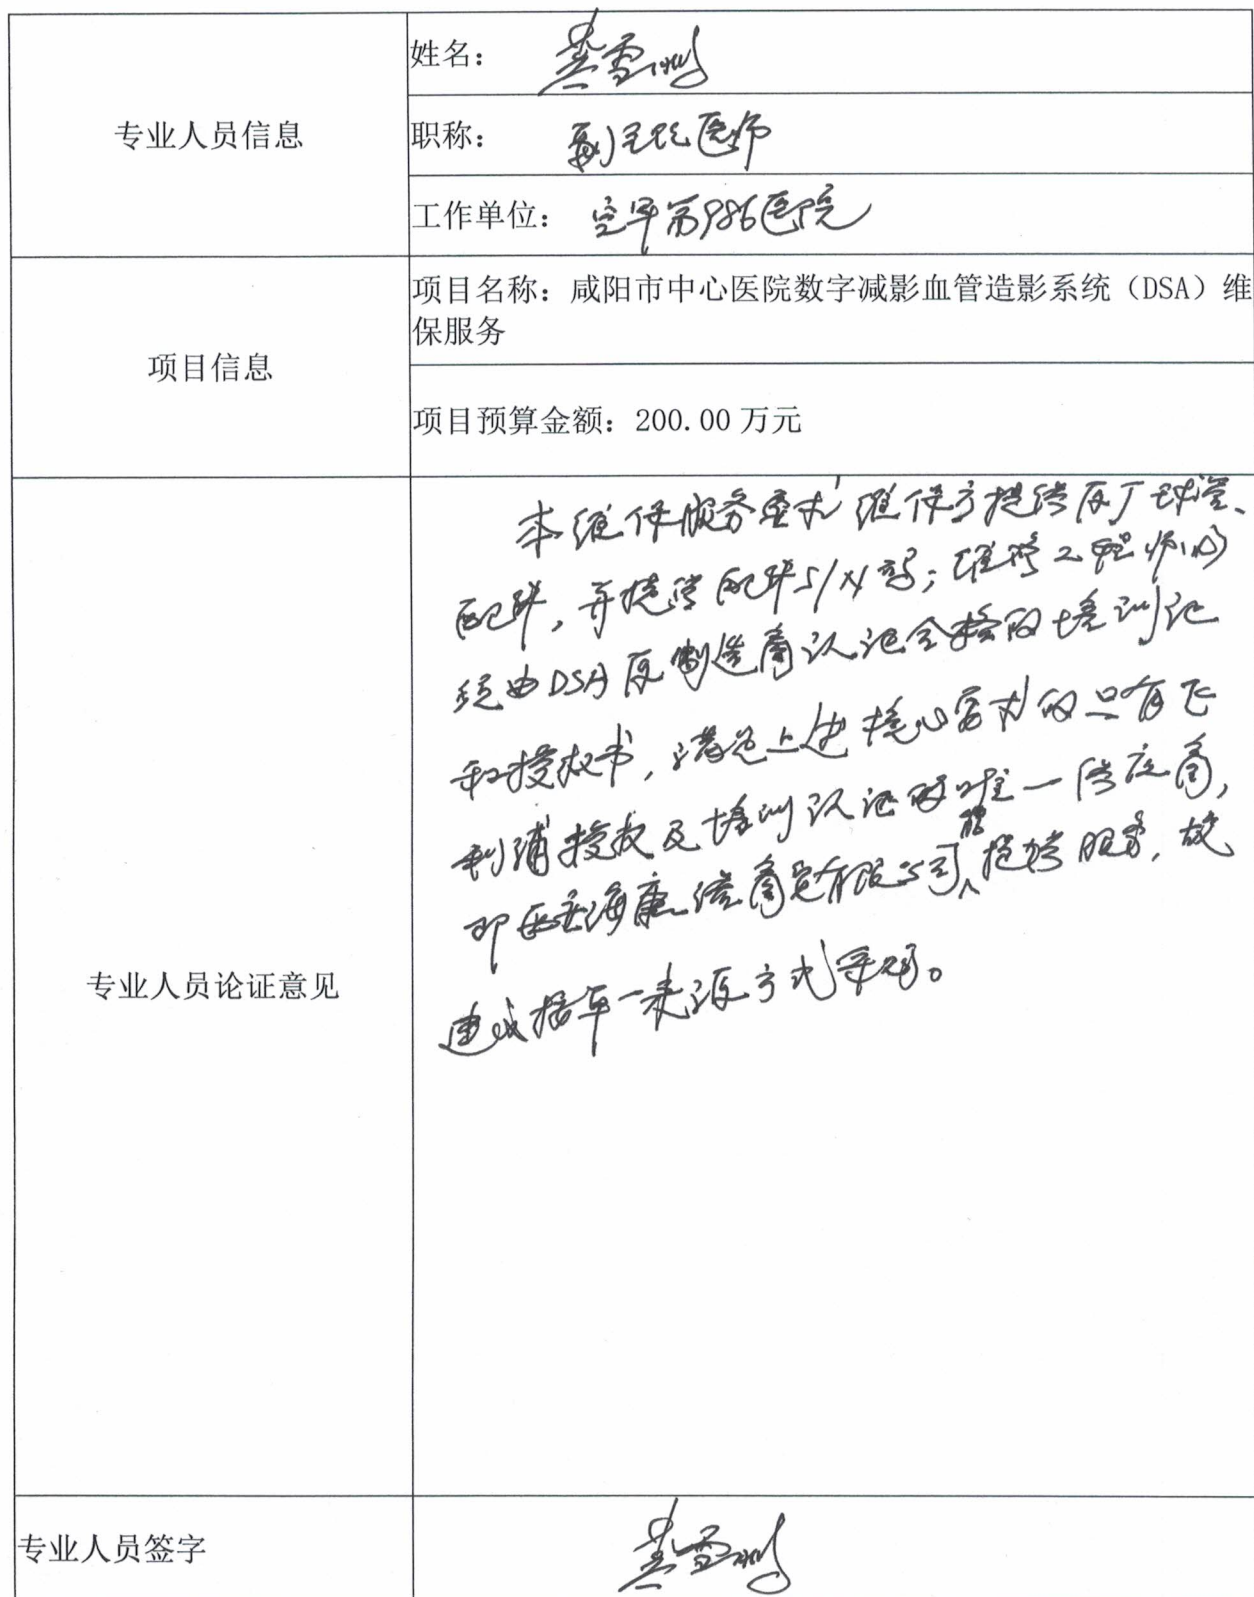 姓名：
专业人员信息
职称：副主任医师
工作单位：空军第986医院
项目名称：咸阳市中心医院数字减影血管造影系统（DSA）维
保服务
项目信息
项目预算金额：200.00万元
本维保服务要求维保方提供原厂球管、
配件，并提供配件S/N号；维修工程师必须
经由DSA原制造商认证合格的培训证
和授权书，满足上述核心需求的只有飞
利浦授权及培训认证的唯一供应商，
即西安海康 商贸有限公司能提供服务，故
建议按单一来源方式采购。
专业人员论证意见
专业人员签字